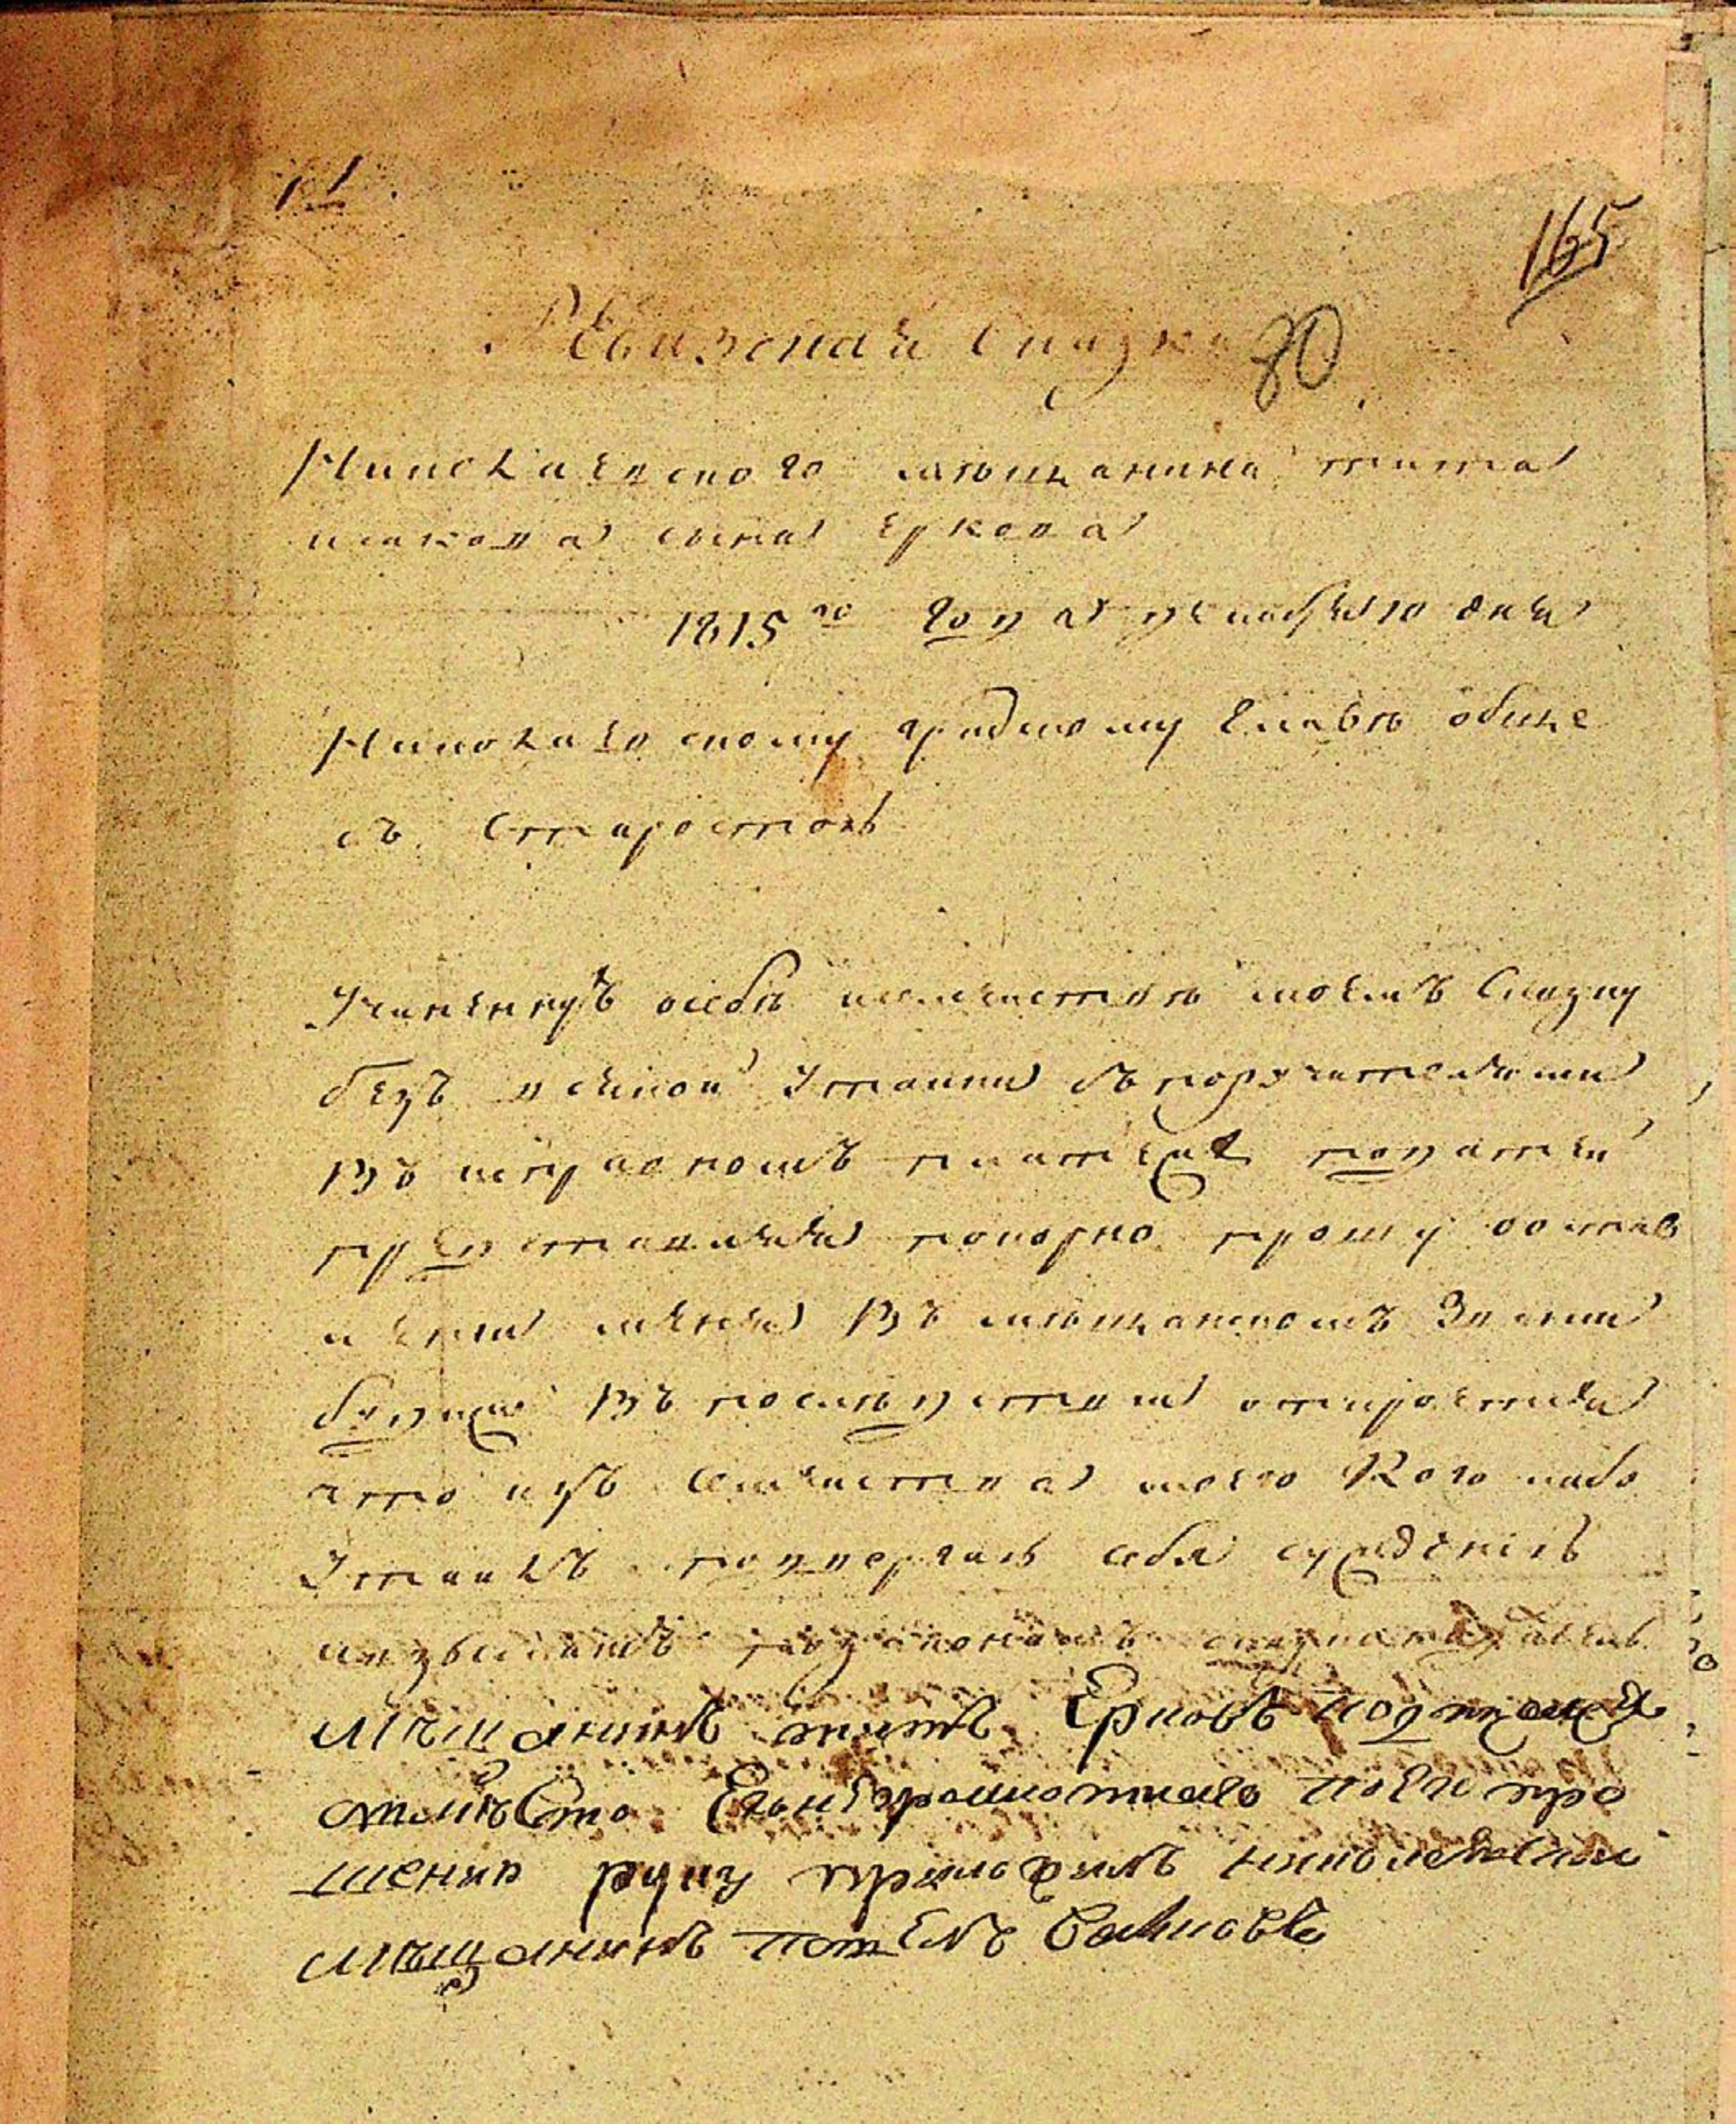 165
Ревизская Сказка 80
мещанина тита
исакова сына Еркова
1815го года декабря 10 дня
градскому Главе обще
съ Старостою
Учиненную о себе и семействе моемъ Сказку
безъ всякой Утайки съ поручителями
въ исправномъ платеже податей
представляя покорно прошу остав
ить меня въ мещанскомъ Звании
будиже въ последствии откроется
что изъ Семейства моего Кого либо
Утаилъ подвергаю себя суждению
мещанинъ титъ Ерковъ подписуюсь
а вместо Его неграмотнаго по его про
шению руку приложилъ
мещанинъ